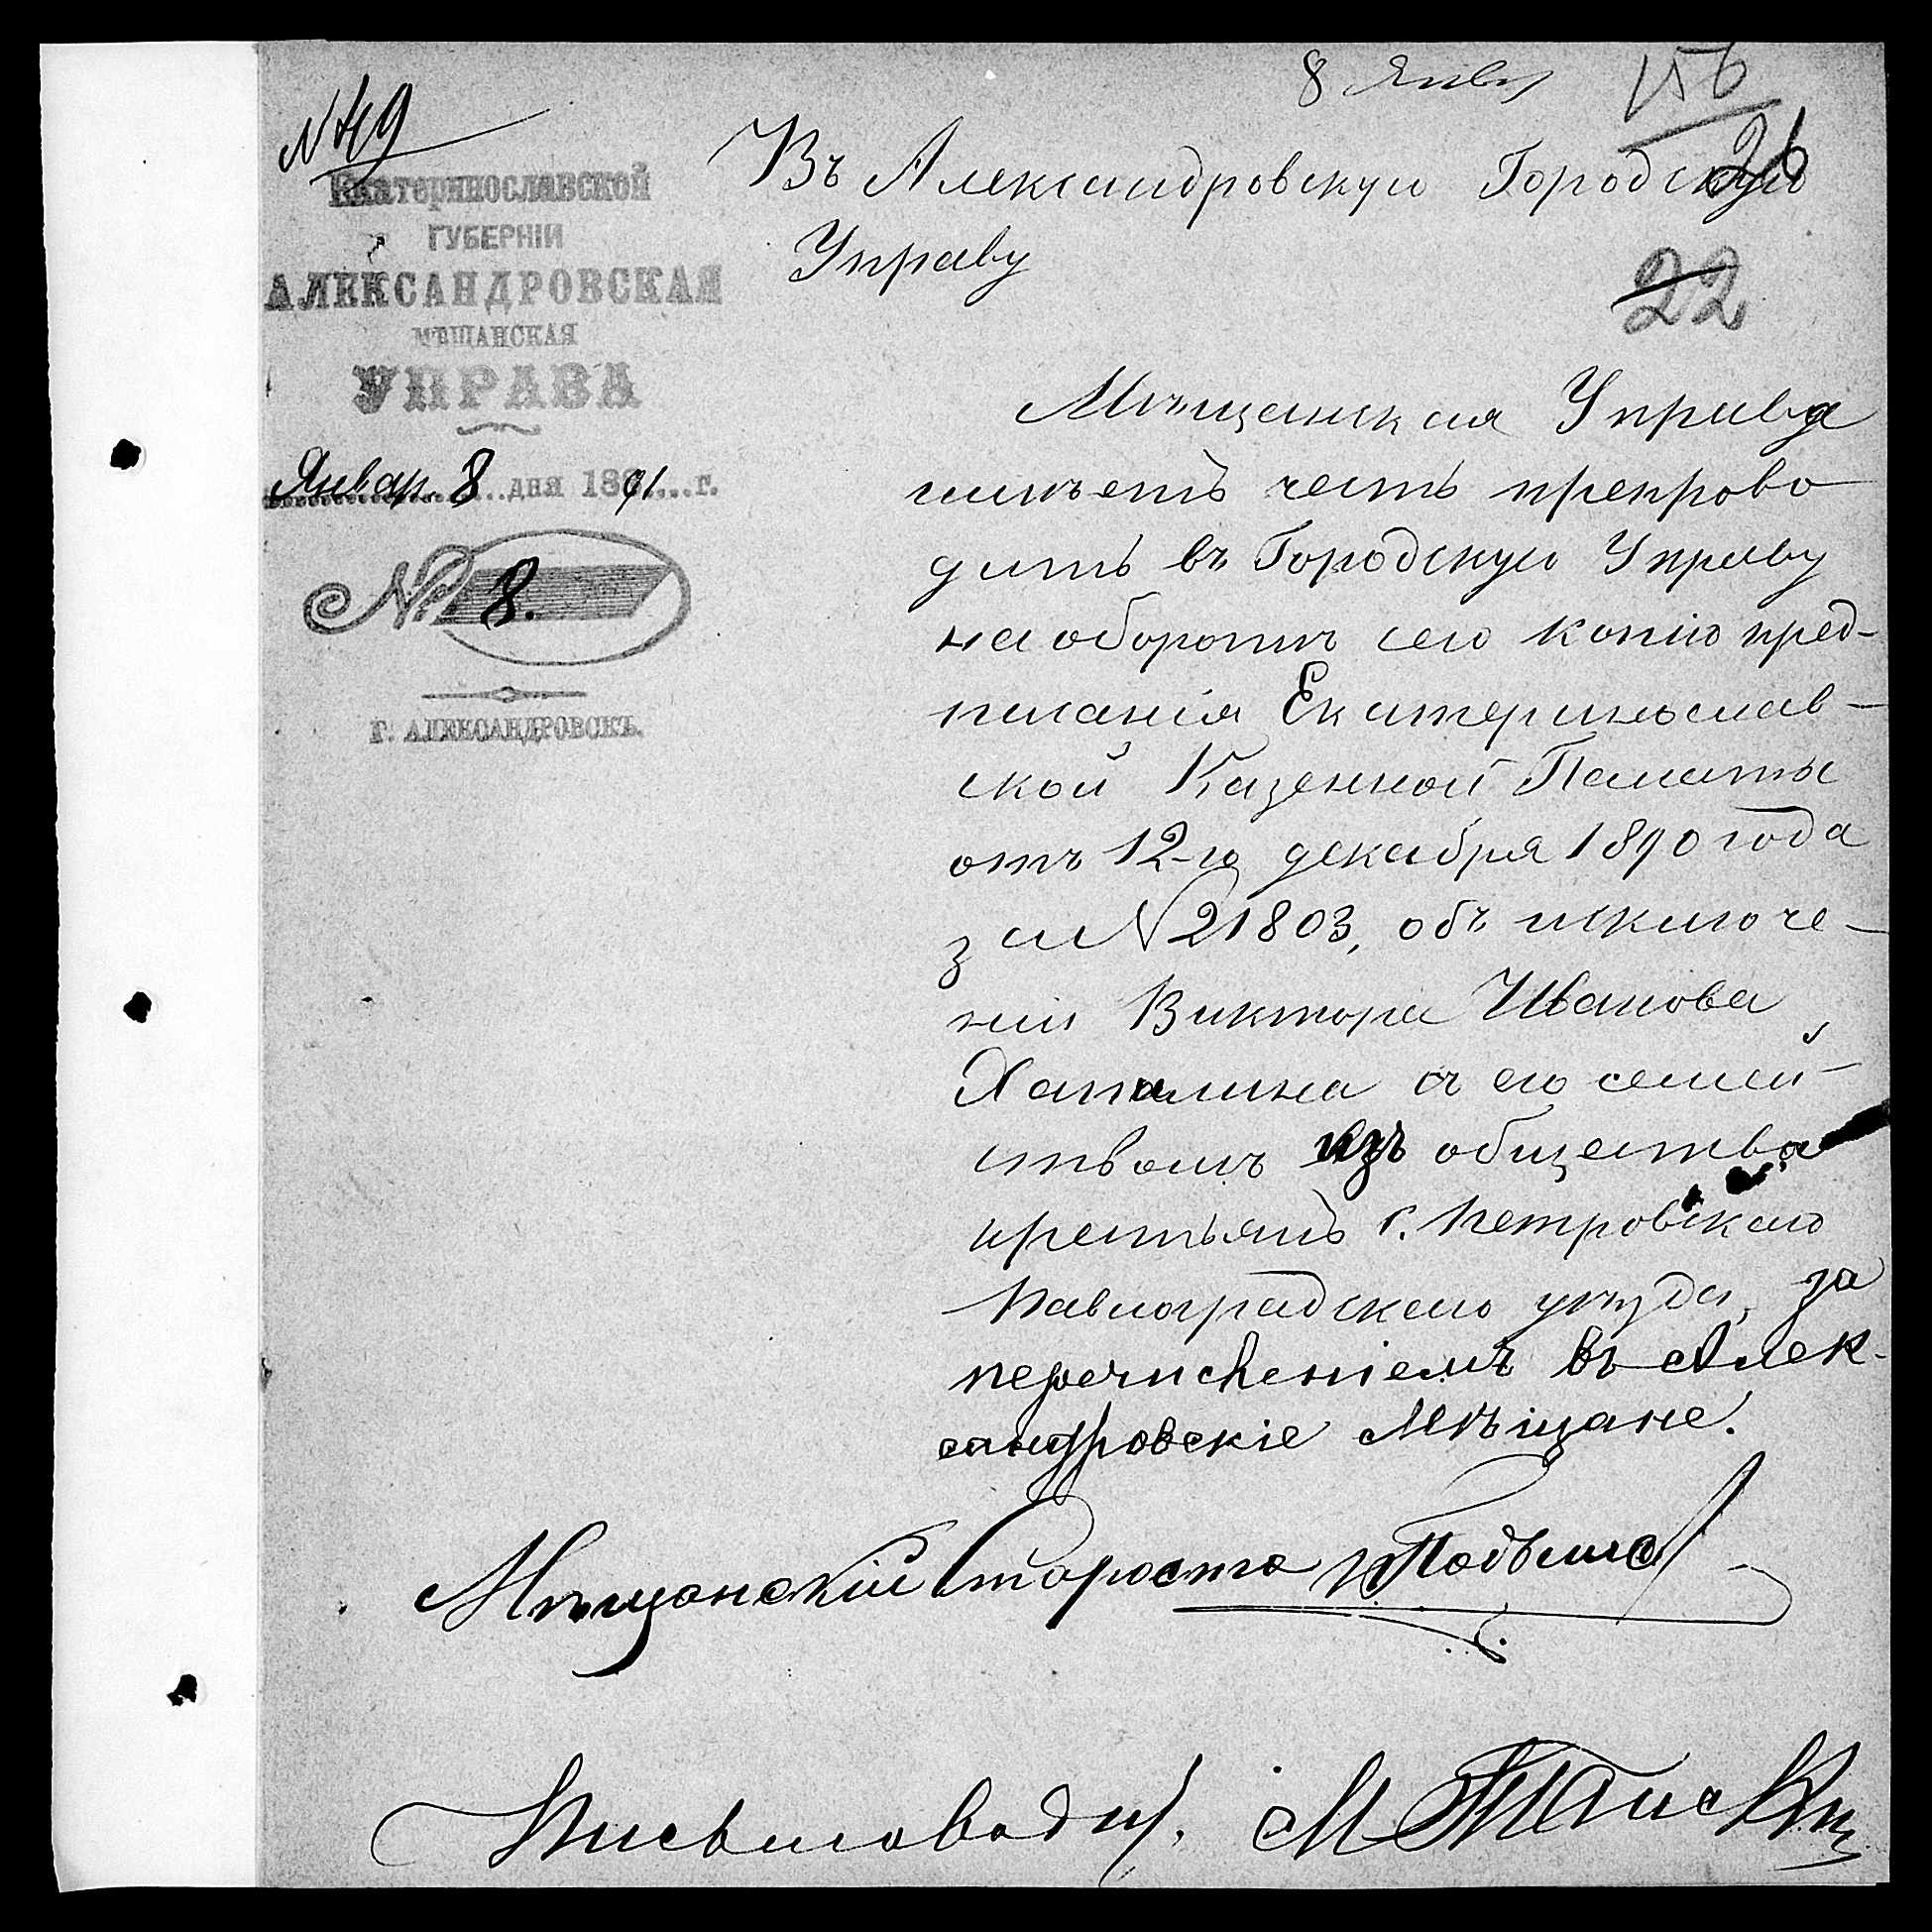 8 Янв
156
№ 49
26
Екатеринославской
ГУБЕРНІИ
АЛЕКСАНДРОВСКАЯ
МѢЩАНСКАЯ
УПРАВА
Январ. 8 дня 1891 г.
№ 8.
Г. АЛЕКСАНДРОВСКЪ.
Въ Александровскую Городскую
Управу
22
Мѣщанская Управа
имѣетъ честь препрово
дить въ Городскую Управу
на оборотѣ сего копію пред-
писанія Екатеринослав-
ской Казенной Палаты
отъ 12-го декабря 1890 года
за № 21803, объ исключе-
ніи Виктора Иванова
Хапалина съ его семей-
ствомъ изъ общества
крестьянъ с. Петровскаго
Павлоградскаго уѣзда, за
перечисленіемъ въ Алек-
сандровскіе Мѣщане.
Мѣщанскій Староста
Письмоводит.